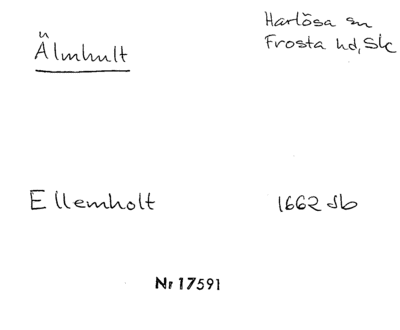 Älmhult
Harlösa sn
Frosta hd, Sk
Ellemholt 1662 Jb
Nr 17591